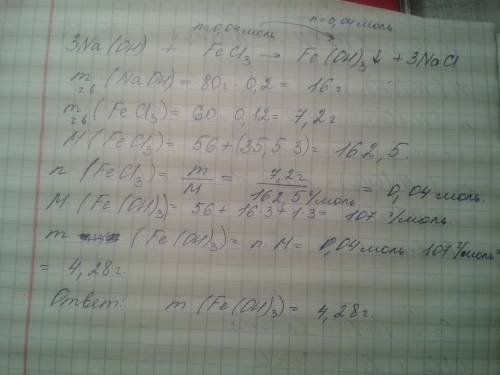 n=0,04 моль n=0,04 моль
3Na(OH) + FeCl₃ → Fe(OH)₃↓ + 3NaCl
m чв (NaOH) = 80г · 0,2 = 16 г
m чв (FeCl₃) = 60 · 0,12 = 7,2 г
M (FeCl₃) = 56 + (35,5 · 3) = 162,5.
n (FeCl₃) = m/M = 7,2г/162,5 г/моль = 0,04 моль.
M (Fe(OH)₃) = 56 + 16·3 + 1·3 = 107 г/моль.
m (Fe(OH)₃) = n · M = 0,04 моль · 107 г/моль =
= 4,28 г.
Ответ: m (Fe(OH)₃) = 4,28 г.